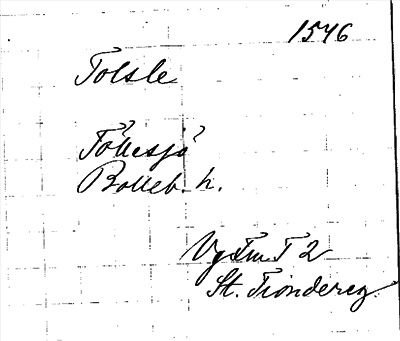 1546
Tolsle
Töllesjö
Bolleb. h.
VgFmT 2
St. Tionderg.